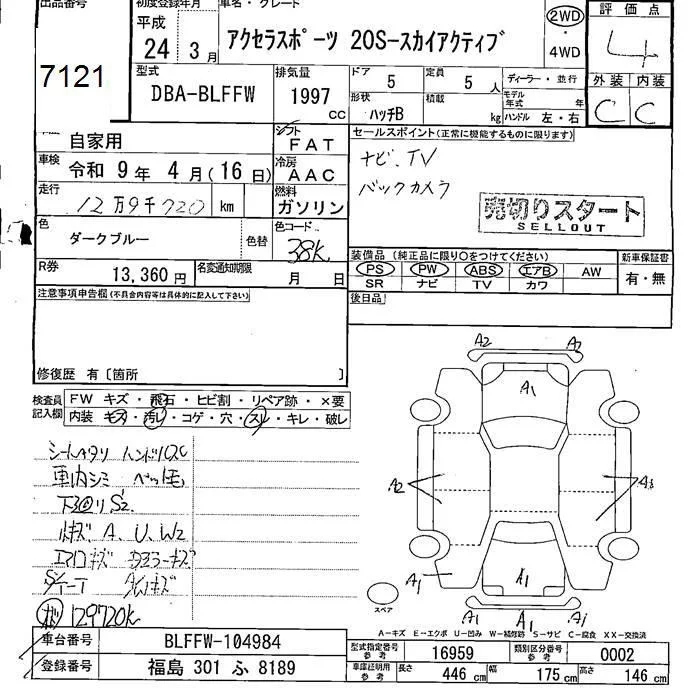 出品番号
初度登録年月
車名・グレード
2WD
評価点
平成
24年3月
アクセラスポーツ 20S-スカイアクティブ
・
4WD
4
7121
型式
排気量
ドア
定員
ディーラー・並行
外装 内装
DBA-BLFFW
1997
5
5
人
モデル年式 年
C C
CC
形状
積載
ハッチB
kg
ハンドル 左・右
自家用
シフト
FAT
セールスポイント(正常に機能するものに限ります)
車検
令和 9年 4月(16日)
冷房
AAC
ナビ、TV
走行
12万9千720 km
燃料
ガソリン
バックカメラ
売切りスタート
SELLOUT
色
ダークブルー
色替
色コード
38K
装備品(純正品に限り○をつけてください)
新車保証書
R券
13,360円
名変通知期限
月 日
PS PW ABS エアB AW
有・無
SR ナビ TV カワ
注意事項申告欄(不具合内容等は具体的に記入して下さい)
後日品
修復歴 有〔箇所 〕
検査員記入欄
FW キズ・飛石・ヒビ割・リペア跡・×要
内装 キズ・汚レ・コゲ・穴・スレ・キレ・破レ
車内シミ
A、U、W2
129720K
A2 A2
A1
A2
A1
A1
A1 A1
スペア
A-キズ E-エクボ U-凹み W-補修跡 S-サビ C-腐食 XX-交換済
車台番号
BLFFW-104984
型式指定番号 参考
16959
類別区分番号 参考
0002
登録番号
福島 301 ふ 8189
車庫証明用 参考
長さ 446 cm
幅 175 cm
高さ 146 cm